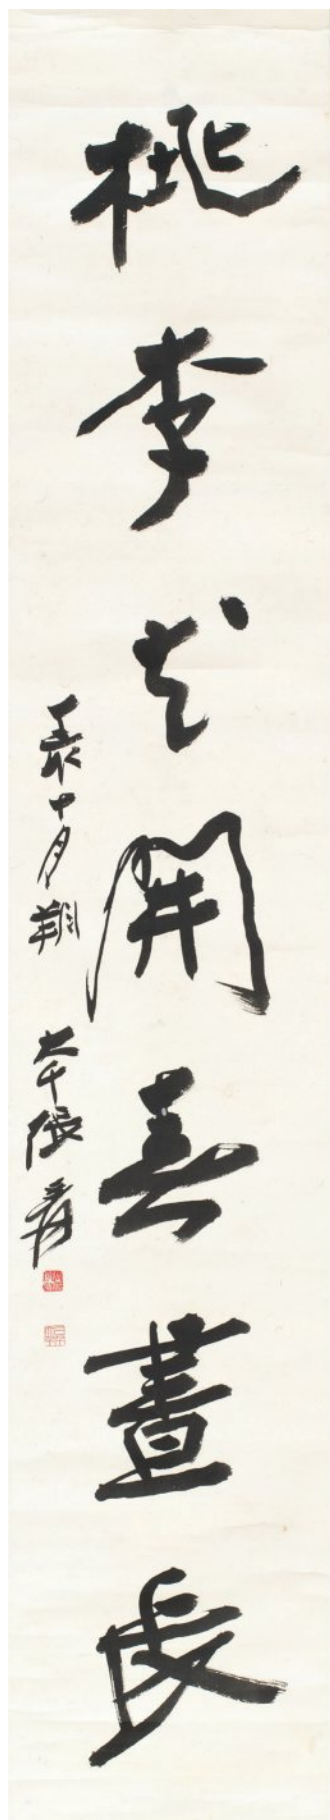 桃李花開春晝長
十月朔 大千張爰